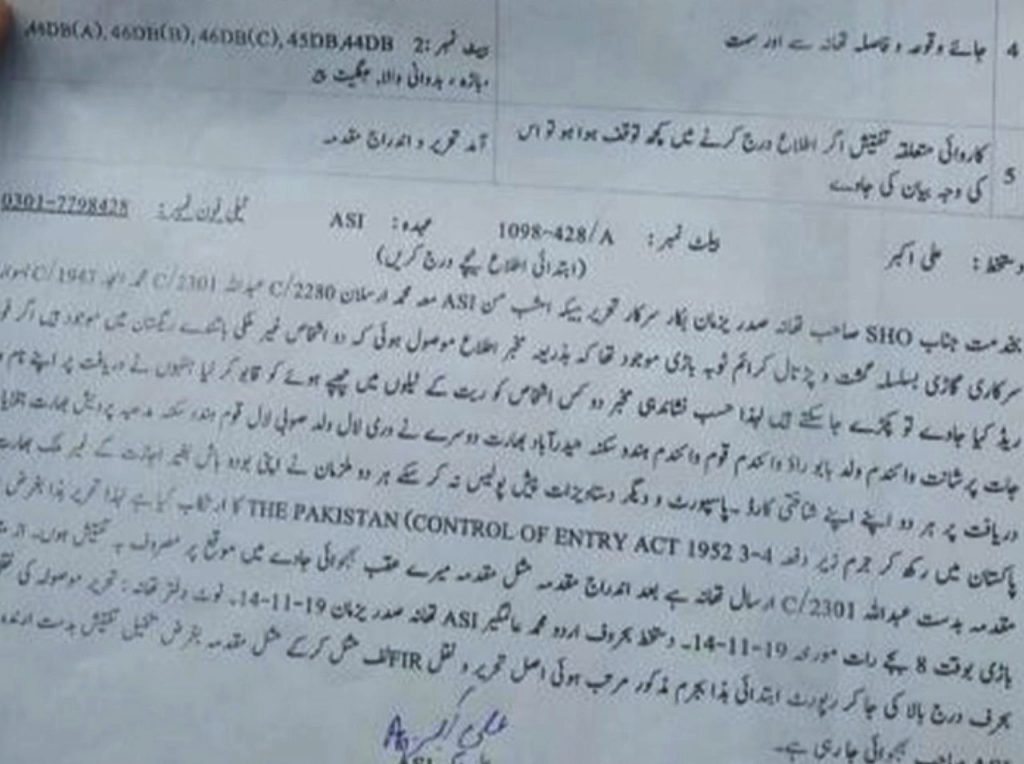 4 جائے وقوعہ و فاصلہ تھانہ سے اور سمت
بیٹ نمبر 2: 44DB(A), 46DB(B), 46DB(C), 45DB,44DB
5 کاروائی متعلقہ تفتیش اگر اطلاع درج کرنے میں کچھ توقف ہوا ہو تو اس
کی وجہ بیان کی جاوے
آمد تحریر و اندراج مقدمہ
دستخط: علی اکبر بیلٹ نمبر: 1098-428/A عہدہ: ASI ٹیلی فون نمبر: 0301-7798428
(ابتدائی اطلاع نیچے درج کریں)
بخدمت جناب SHO صاحب تھانہ صدر یزمان بکار سرکار تحریر ہیکہ امشب من ASI معہ محمد ارسلان C/2280 عبداللہ C/2301 محمد C/1947
سرکاری گاڑی بسلسلہ گشت و پڑتال کرائم ٹوبہ بازی موجود تھا کہ بذریعہ مخبر اطلاع موصول ہوئی کہ دو اشخاص غیر ملکی باشندے ریگستان میں موجود ہیں اگر
ریڈ کیا جاوے تو پکڑے جا سکتے ہیں لہذا حسب نشاندہی مخبر دو کس اشخاص کو ریت کے ٹیلوں میں چھپے ہوئے کو قابو کر لیا جنہوں نے دریافت پر اپنے نام و
جات پرشانت وائندم ولد بابو راؤ وائندم قوم وائندم ہندو سکنہ حیدرآباد بھارت دوسرے نے وری لال ولد صوبی لال قوم ہندو سکنہ مدھیہ پردیش بھارت بتلایا
دریافت پر ہر دو اپنے اپنے شناختی کارڈ۔ پاسپورٹ و دیگر دستاویزات پیش پولیس نہ کر سکے ہر دو ملزمان نے اپنی بودوباش بغیر اجازت کے غیر ملک بھارت
پاکستان میں رکھ کر جرم زیر دفعہ 3-4 THE PAKISTAN (CONTROL OF ENTRY ACT 1952 کا ارتکاب کیا ہے لہذا تحریر ہذا بغرض
مقدمہ بدست عبداللہ C/2301 ارسال تھانہ ہے بعد اندراج مقدمہ مثل مقدمہ میرے عقب بھجوائی جاوے میں موقع پر مصروف بہ تفتیش ہوں۔ از
بازی بوقت 8 بجے رات مورخہ 14-11-19۔ دستخط بحروف اردو محمد عالمگیر ASI تھانہ صدر یزمان 14-11-19۔ نوٹ دفتر تھانہ: تحریر موصولہ کی
بحرف درج بالا کی جا کر رپورٹ ابتدائی ہذا بجرم مذکور مرتب ہوئی اصل تحریر و نقل FIR لف مثل کر کے مثل مقدمہ بغرض تکمیل تفتیش بدست
صاحب بھجوائی جا رہی ہے۔
علی اکبر
ASI